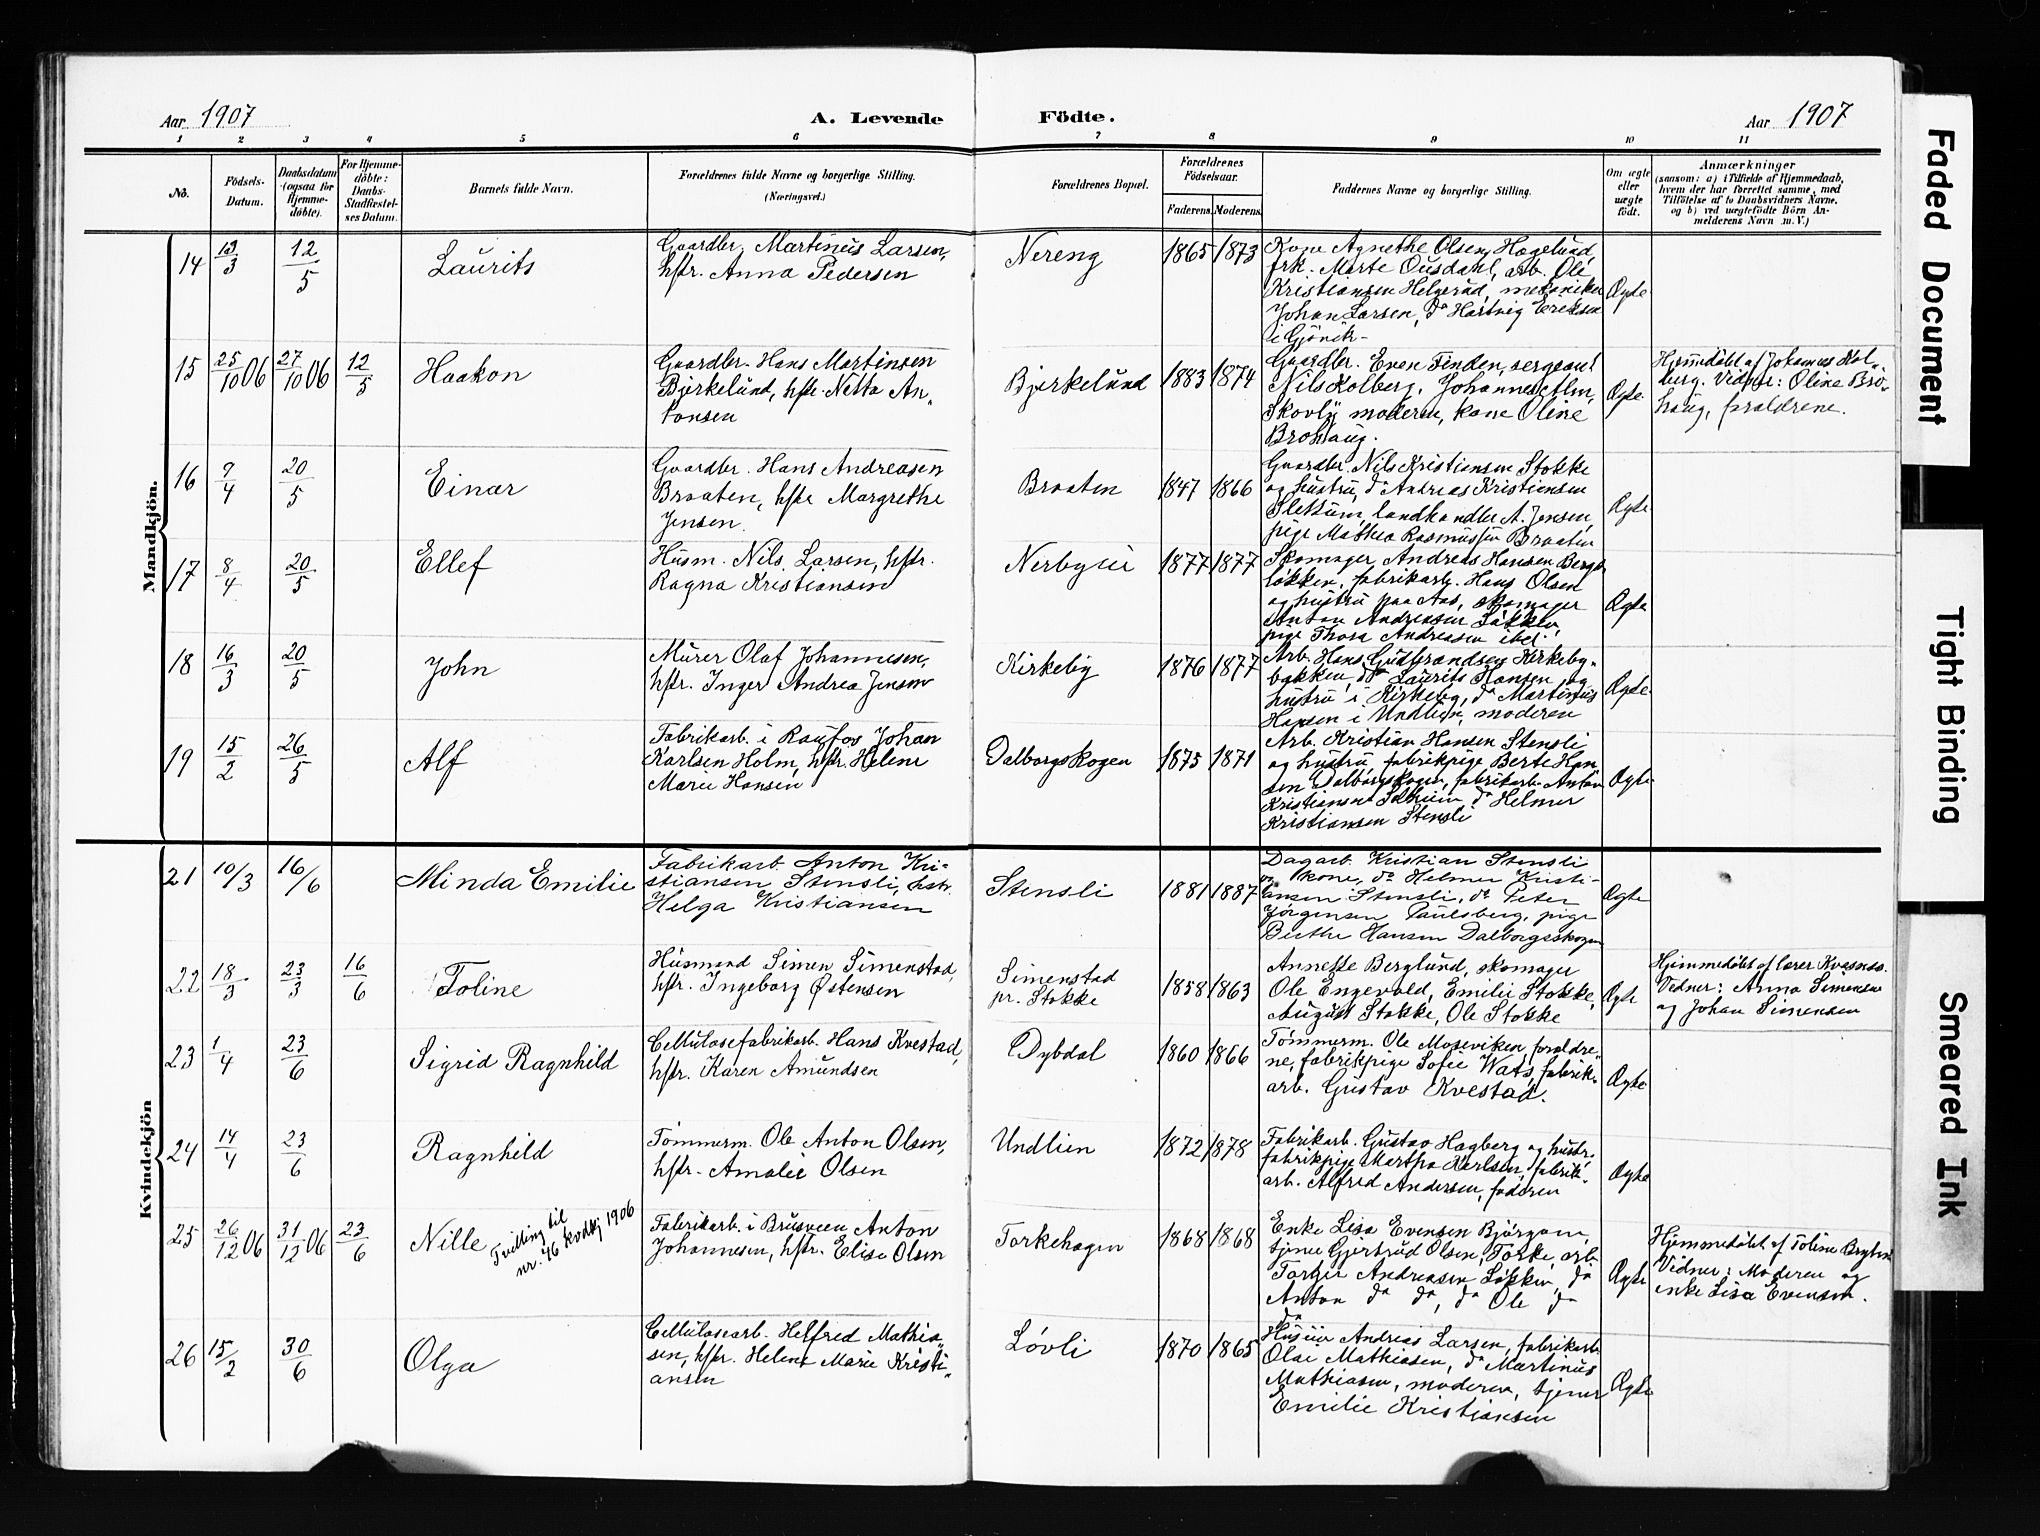 Aar 1907
A. Levende
Födte.
Aar 1907
1 2 3 4 5 6 7 8 9 10 11
No.
Födsels-Datum.
Daabsdatum (ogsaa for Hjemmedöbte).
For Hjemmedöbte: Daabs-Stadfæstelses Datum.
Barnets fulde Navn.
Forældrenes fulde Navne og borgerlige Stilling.
(Næringsvei.)
Forældrenes Bopæl.
Forældrenes Födselsaar.
Faderens. Moderens.
Faddernes Navne og borgerlige Stilling.
Om ægte eller uægte födt.
Anmærkninger
(saasom: a) i Tilfælde af Hjemmedaab,
hvem der har forrettet samme, med
Tilföielse af to Daabsvidners Navne,
og b) ved uægtefödte Börn An-
melderens Navn m. V.)
Mandkjön.
14
3
12/5
Laurits
Gaardbr. Martinius Larsen,
hstr. Anna Pedersen
Nereng
1865 1873
Kone Agnethe Olsen Hagelund,
frk. Marte Ousdahl, arb. Ole
Kristiansen Helgerud, mekaniker
Johan Larsen, do Hartvig Eriksen
i Gjövik.
Ægte
15
25/10 06
27/10 06
12/5
Haakon
Gaardbr. Hans Martinsen
Bjerkelund, hstr. Netta An-
tonsen
Bjerkelund
1883 1874
Gaardbr. Even Finden, sergeant
Nils Kolberg, Johannes Alm,
Skovly, moderen, kone Oline
Brohaug.
Ægte
Hjemmedöbt af Johannes Kol-
berg. Vidner: Oline Bro-
haug, forældrene.
16
7/4
20/5
Einar
Gaardbr. Hans Andreasen
Braaten, hstr Margrethe
Jensen.
Braaten
1847 1866
Gaardbr. Nils Kristiansen Stokke
og hustru, do Andreas Kristiansen
Slettum, landhandler A. Jensen,
pige Mathea Rasmussen Braaten
Ægte
17
8/4
20/5
Ellef
Husm. Nils Larsen, hstr.
Ragna Kristiansen
Nerbyeie
1877 1877
Skomager Andreas Hansen Berge-
løkken, fabrikarb. Hans Olsen
og hustru paa Aas, skomager
Anton Andreasen Løkken,
pige Thora Andreasen ibd.
Ægte
18
16/3
20/5
John
Murer Olaf Johannesen,
hstr. Inger Andrea Jensen
Kirkeby
1876 1877
Arb. Hans Gudbrandsen Kirkeby-
bakken, do Laurits Hansen og
hustru i Kirkeby, do Martinius
Hansen i Undlien, moderen
Ægte
19
15/2
26/5
Alf
Fabrikarb. i Raufos Johan
Karlsen Holm, hstr. Helene
Marie Hansen
Dalborgskogen
1875 1871
Arb. Kristian Hansen Stensli
og hustru, fabrikpige Berte Han
sen Dalborgskogen, fabrikarb. Anton
Kristiansen Solheim, do Helmer
Kristiansen Stensli
Ægte
Kvindekjön
21
10/3
16/6
Minda Emilie
Fabrikarb. Anton Kri-
stiansen Stensli, hstr.
Helga Kristiansen
Stensli
1881 1887
Dagarb. Kristian Stensli
og kone, do Helmer Kristi-
ansen Stensli, do Peter
Jørgensen Paulsberg, pige
Berthe Hansen Dalborgsskogen
Ægte
22
18/3
23/3
16/6
Toline
Husmand Simen Simenstad,
hstr. Ingeborg Østensen
Simenstad
pr. Stokke
1858 1863
Annette Berglund, skomager
Ole Engevold, Emilie Stokke,
August Stokke, Ole Stokke
Ægte
Hjemmedöbt af lærer Kvasnes.
Vidner: Anna Simensen
og Johan Simensen
23
1/4
23/6
Sigrid Ragnhild
Cellulosefabrikarb. Hans Kvestad,
hstr. Karen Amundsen
Dybdal
1860 1866
Tømmerm. Ole Moseviken, forældre-
ne, fabrikpige Sofie Wats, fabrik-
arb. Gustav Kvestad.
Ægte
24
14/4
23/6
Ragnhild
Tømmerm. Ole Anton Olsen,
hstr. Amalie Olsen
Undlien
1872 1878
Fabrikarb. Gustav Hagberg og hustr.,
fabrikpige Martha Karlsen, fabrik-
arb. Alfred Andersen, faderen
Ægte
25
26/12 06
31/12 06
23/6
Nille
Tvilling til
nr. 46 kvdkj 1906
Fabrikarb. i Brusveen Anton
Johannesen, hstr. Elise Olsen
Torkehagen
1868 1868
Enke Lisa Evensen Bjørgom,
tjener Gjertrud Olsen, Torke, arb.
Torger Andreasen Løkken, do
Anton do do, do Ole do
do
Ægte
Hjemmedöbt af Toline
Vidner: Moderen og
enke Lisa Evensen.
26
15/2
30/6
Olga
Cellulosearb. Helfred Mathia-
sen, hstr. Helene Marie Kristi-
ansen
Løvli
1870 1865
Huseier Andreas Larsen, fabrikarb.
Olai Mathiasen, do Martinus
Mathiasen, moderen, tjener
Emilie Kristiansen
Ægte
Faded Document
Tight Binding
Smeared Ink